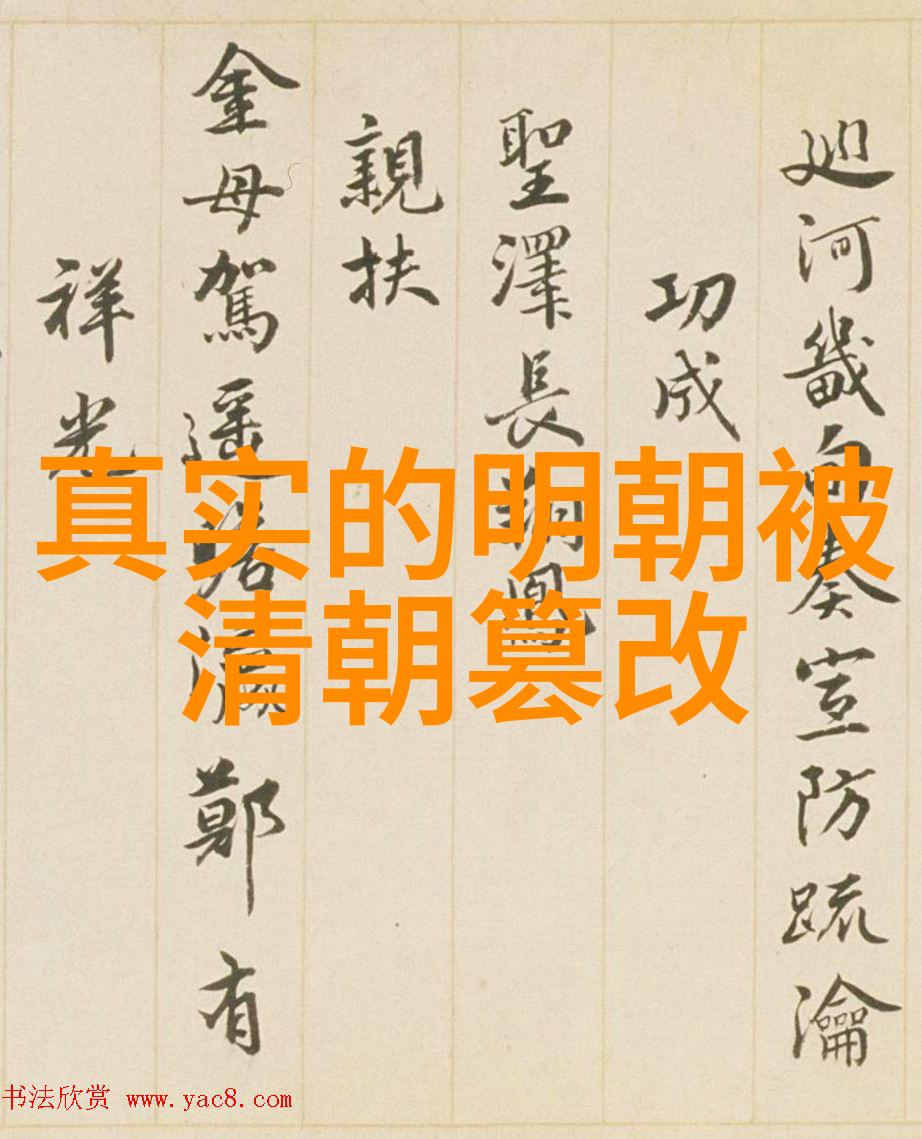 廵河畿向奏宣防疏瀹
功成
聖澤長
親扶
金母駕遥鄭有
祥光
真实的明朝被
清朝篡改
书法欣赏 www.yac8.com